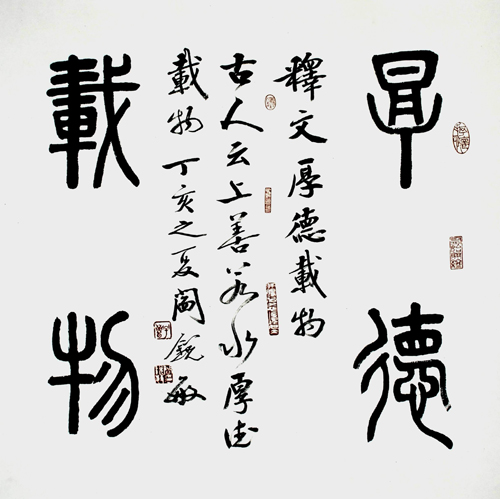 厚德
釋文厚德載物
古人云上善若水厚德
載物丁亥之夏閻銳敏
載物